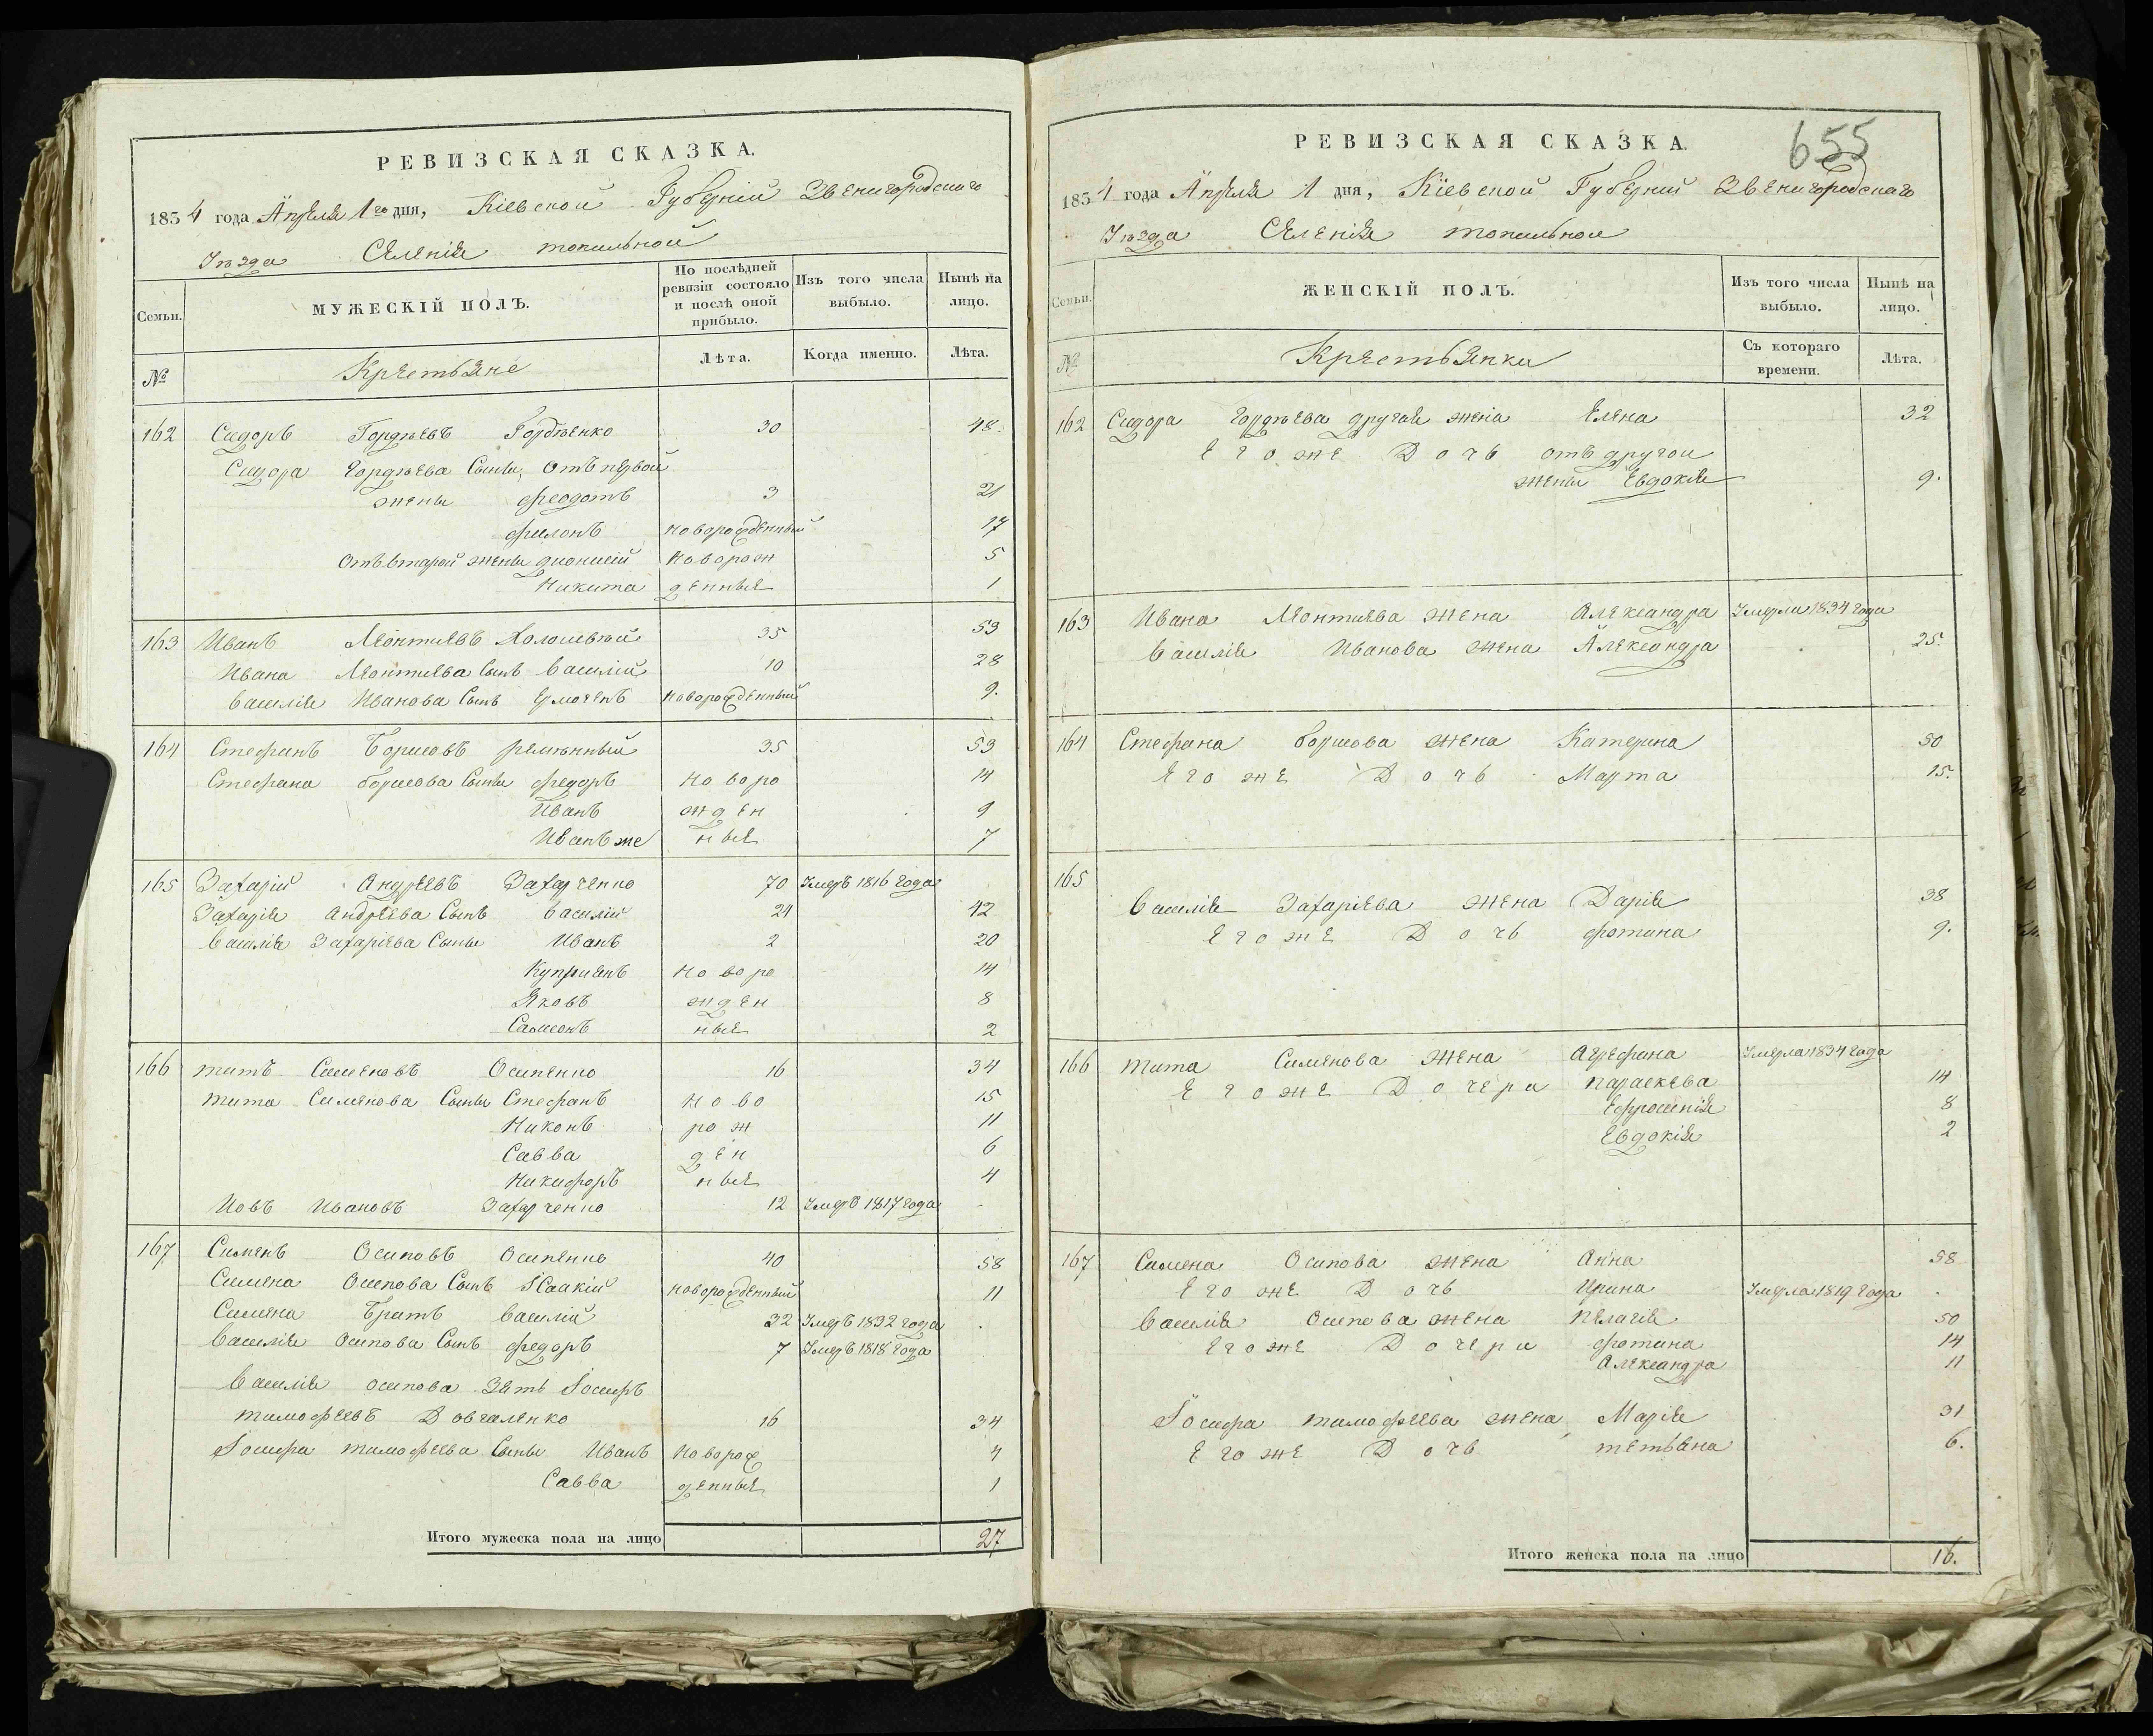 РЕВИЗСКАЯ СКАЗКА.
1834 года Апреля 1го дня, Кіевской Губерніи Звенигородского
Уезда Селенія топильной
Семьи.
МУЖЕСКІЙ ПОЛЪ.
По послѣдней ревизіи состояло и послѣ оной прибыло.
Изъ того числа выбыло.
Нынѣ на лицо.
№
Крестьяне
Лѣта.
Когда именно.
Лѣта.
162 Сидоръ Гордѣевъ Гордѣенко 30 48.
Сидора Гордѣева Сыны, отъ первой
жены Феодотъ 3 21
Филонъ новорожденный 17
Отъ второй жены дионисій новорож 5
Никита денные 1
163 Иванъ Леонтиевъ 35 53
Ивана Леонтиева Сынъ Василій 10 28
Василія Иванова Сынъ Ермогенъ новорожденный 9.
164 Стефанъ Борисовъ 35 53
Стефана борисова Сыны Федоръ ново ро 14
Иванъ жден 9
Иванъ же ные 7
165 Захарій Андреевъ Захарченко 70 Умеръ 1816 Года
Захарія Андреева Сынъ Василій 24 42
Василія Захаріева Сыны Иванъ 2 20
Куприянъ ново ро 14
Яковъ жден 8
Самсонъ ные 2
166 титъ Сименовъ Осипенко 16 34
тита Сименова Сыны Стефанъ ново 15
Никонъ рож 11
Савва ден 6
Никифоръ ные 4
Иовъ Ивановъ Захарченко 12 Умеръ 1817 года -
167 Сименъ Осиповъ Осипенко 40 58
Симена Осипова Сынъ Исакій новорожденный 11
Симена Братъ Василій 32 Умеръ 1832 года .
Василія Осипова Сынъ Федоръ 7 Умеръ 1818 Года
Василія осипова Зять Іосифъ
тимофеевъ Довгаленко 16 34
Іосифа тимофеева Сыны Иванъ новорож 4
Савва денные 1
Итого мужеска пола на лицо 27
655
РЕВИЗСКАЯ СКАЗКА.
1834 года Апреля 1 дня, Кіевской Губерніи Звенигородскаго
Уѣзда Селенія топильной
Семьи.
ЖЕНСКІЙ ПОЛЪ.
Изъ того числа выбыло.
Нынѣ на лицо.
№
Крестьянки
Съ котораго времени.
Лѣта.
162 Сидора Гордѣева другая жена Елена 32
Его же Дочь отъ другои
жены Евдокія 9.
163 Ивана Леонтиева жена Александра Умерла 1834 года
Василія Иванова жена Александра 25.
164 Стефана борисова жена Катерина 50
Его же Дочь Марта 15.
165
Василія Захаріева жена Дарія 38
Его же Дочь фотина 9.
166 Тита Сименова жена Агрефина Умерла 1834 года
Его же Дочери параскева 14
Ефросинія 8
Евдокія 2
167 Симена Осипова жена Анна 58
Его же Дочь Ирина Умерла 1819 года .
Василія Осипова жена пелагія 50
Его же Дочери фотина 14
Александра 11
Іосифа тимофеева жена Марія 31
Его же Дочь тетьяна 6.
Итого женска пола на лицо 16.